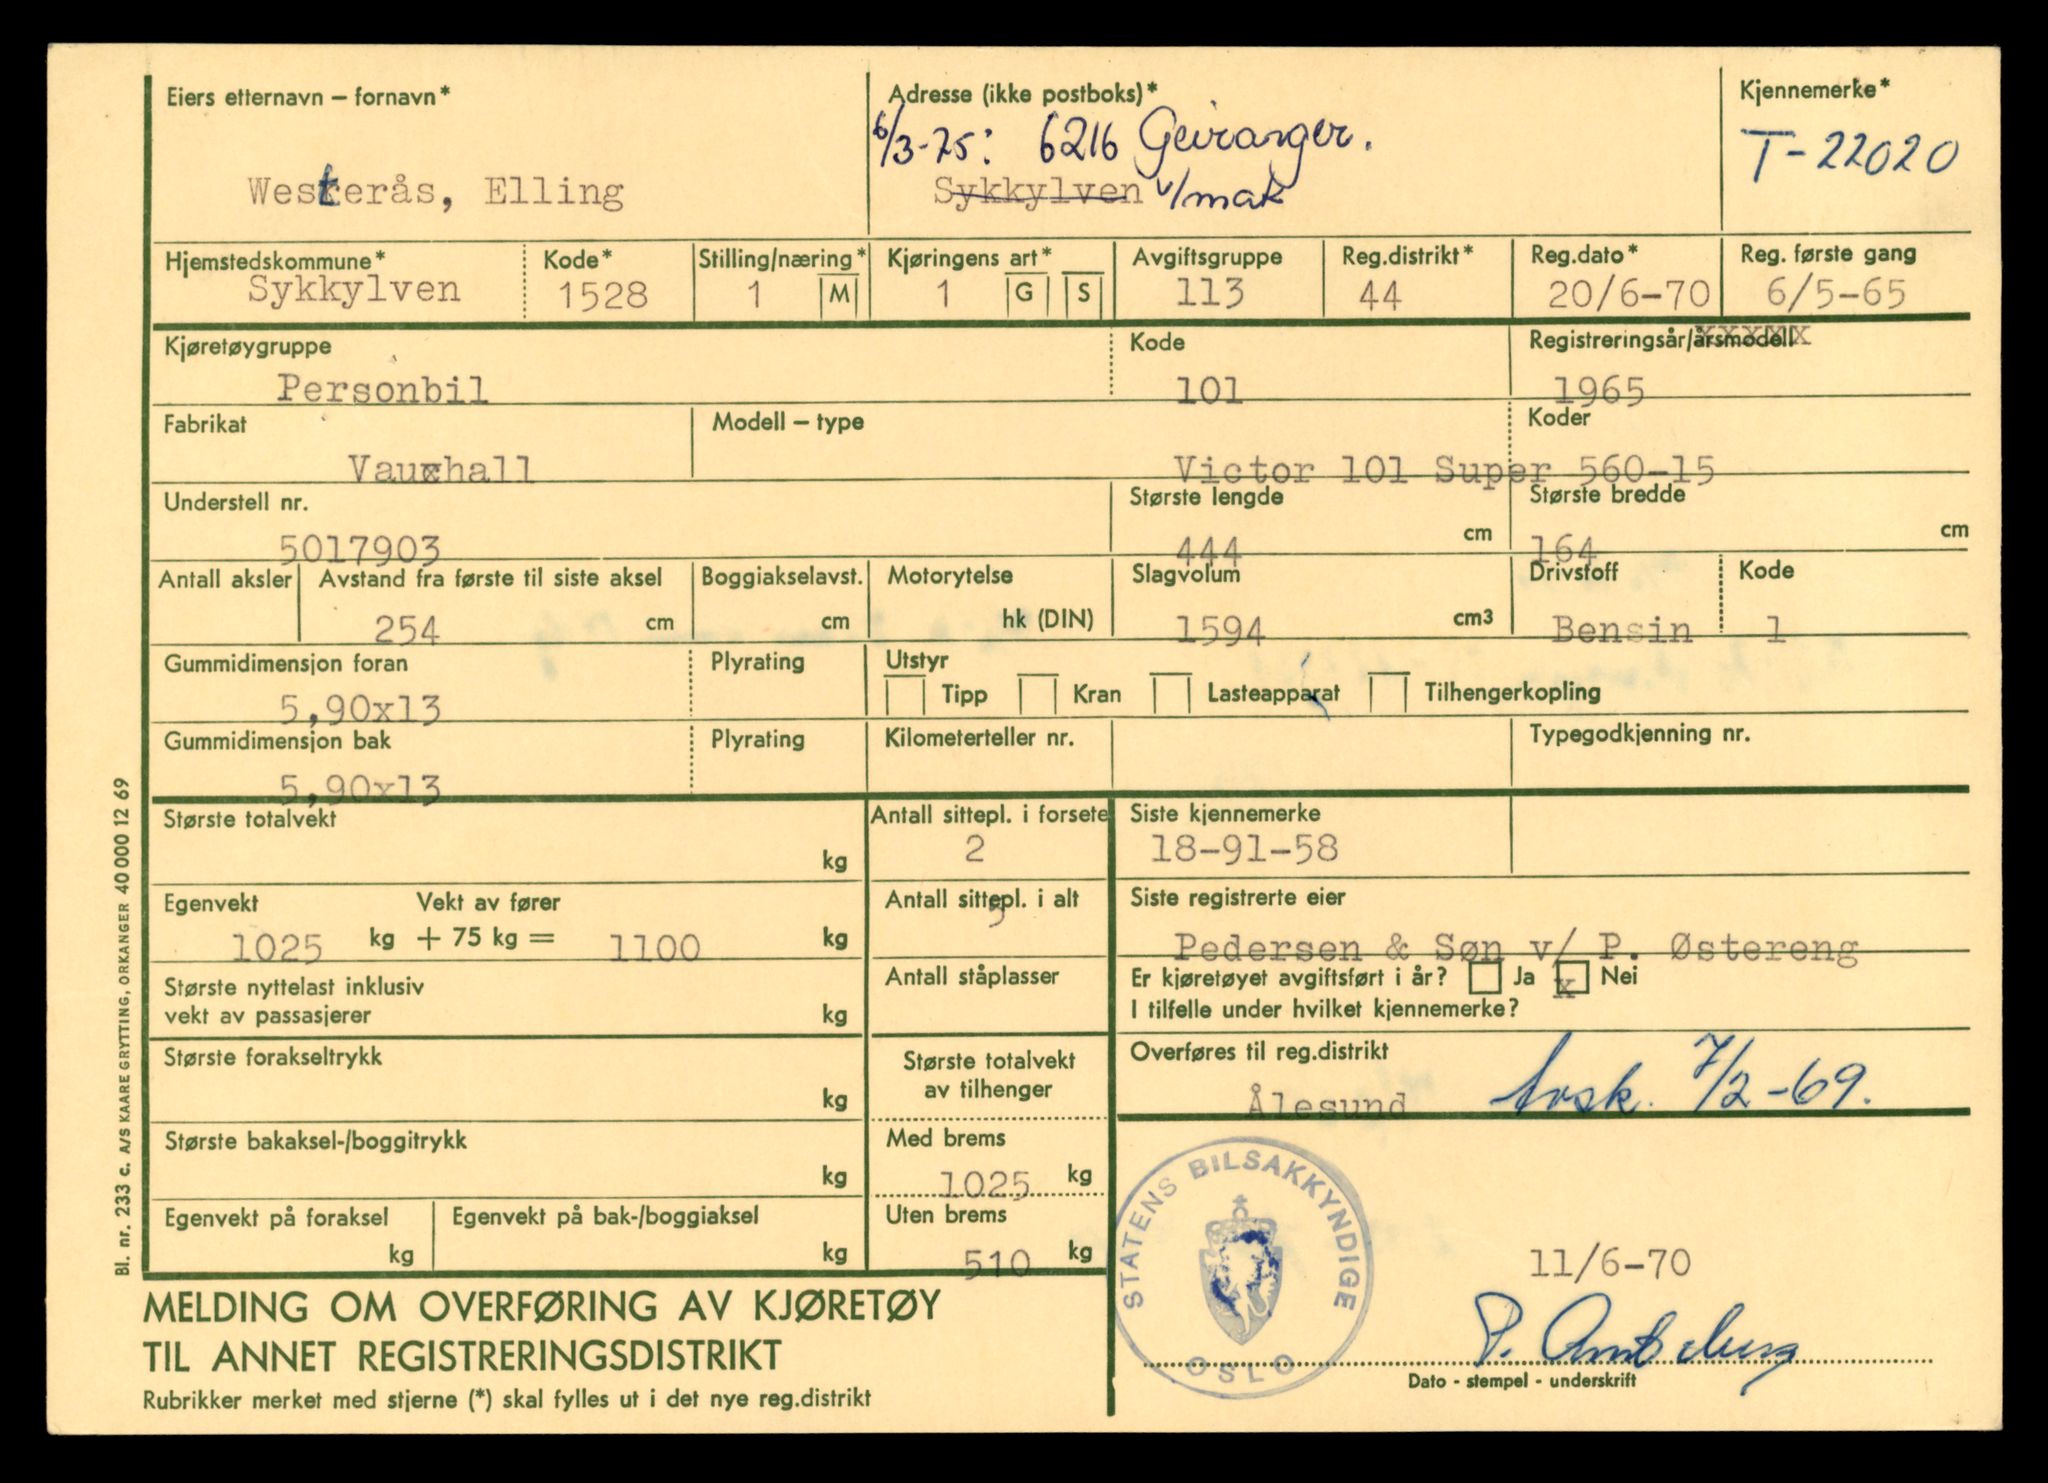 Eiers etternavn – fornavn*
Westerås, Elling
Adresse (ikke postboks)*
6/3-75: 6216 Geiranger.
Sykkylven v/mak
Kjennemerke*
T-22020
Hjemstedskommune*
Sykkylven
Kode*
1528
Stilling/næring*
1 M
Kjøringens art*
1 G S
Avgiftsgruppe
113
Reg.distrikt*
44
Reg.dato*
20/6-70
Reg. første gang
6/5-65
Kjøretøygruppe
Personbil
Kode
101
Registreringsår/årsmodell
1965
Fabrikat
Vauxhall
Modell – type
Victor 101 Super
Koder
560-15
Understell nr.
5017903
Største lengde
444 cm
Største bredde
164 cm
Antall aksler
Avstand fra første til siste aksel
254 cm
Boggiakselavst.
cm
Motorytelse
hk (DIN)
Slagvolum
1594 cm3
Drivstoff
Bensin
Kode
1
Gummidimensjon foran
5,90x13
Plyrating
Utstyr
Tipp Kran Lasteapparat Tilhengerkopling
Gummidimensjon bak
5,90x13
Plyrating
Kilometerteller nr.
Typegodkjenning nr.
Største totalvekt
kg
Antall sittepl. i forsete
2
Siste kjennemerke
18-91-58
Egenvekt Vekt av fører
1025 kg + 75 kg = 1100 kg
Antall sittepl. i alt
5
Siste registrerte eier
Pedersen & Søn v/ P. Østereng
Største nyttelast inklusiv
vekt av passasjerer kg
Antall ståplasser
Er kjøretøyet avgiftsført i år? Ja x Nei
I tilfelle under hvilket kjennemerke?
Største forakseltrykk
kg
Største totalvekt
av tilhenger
Overføres til reg.distrikt
Ålesund
Avsk. 7/2-69.
Største bakaksel-/boggitrykk
kg
Med brems
1025 kg
Egenvekt på foraksel
kg
Egenvekt på bak-/boggiaksel
kg
Uten brems
510 kg
STATENS BILSAKKYNDIGE
OSLO
11/6-70
Dato - stempel - underskrift
MELDING OM OVERFØRING AV KJØRETØY
TIL ANNET REGISTRERINGSDISTRIKT
Rubrikker merket med stjerne (*) skal fylles ut i det nye reg.distrikt
Bl. nr. 233 c. A/S KAARE GRYTTING, ORKANGER 40 000 12 69